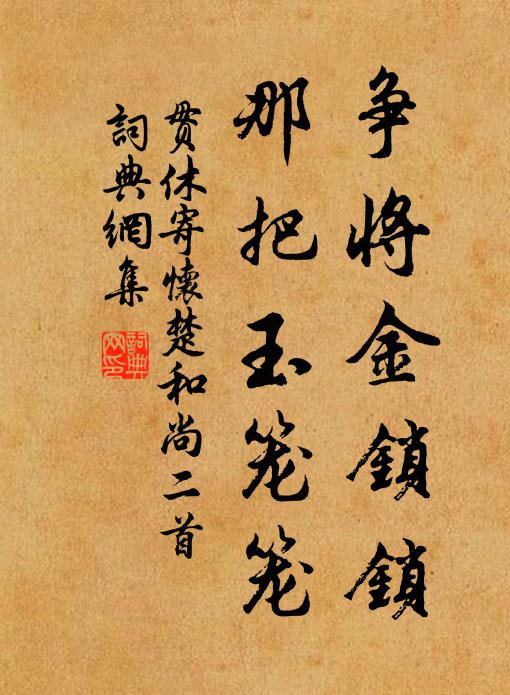 争將金鎖鎖
那把玉笼笼
贯休寄懷楚和尚二首
詞典網集
詞典网印